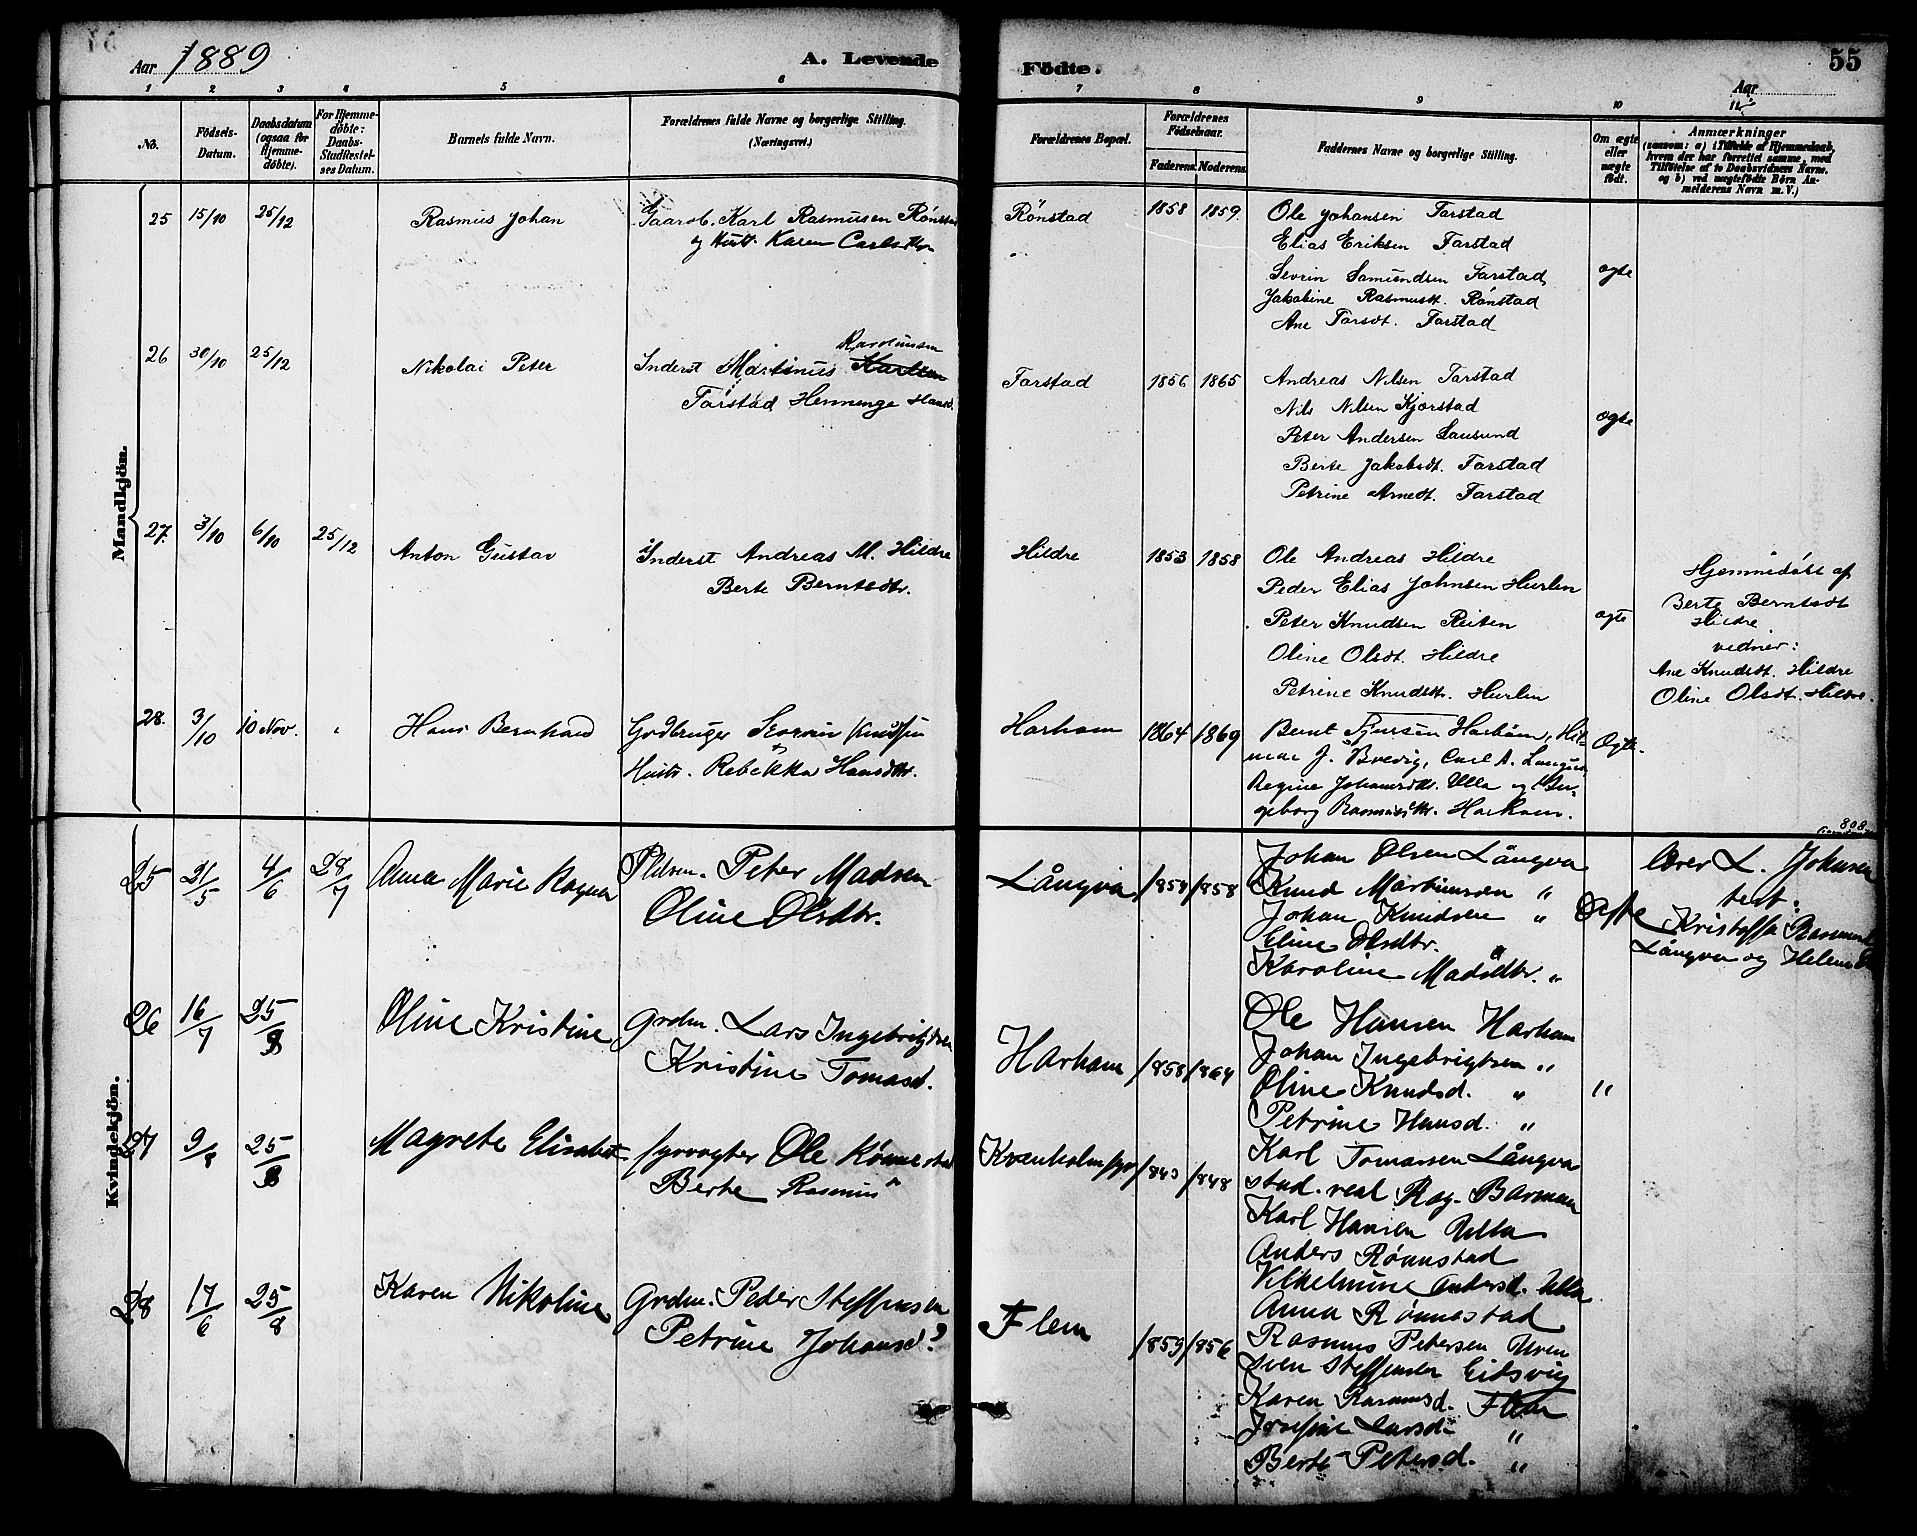 Aar 1889
A. Levende Födte.
55
Aar
1 2 3 4 5 6 7 8 9 10
No.
Födsels-Datum.
Daabsdatum (ogsaa for Hjemme-döbte).
For Hjemme-döbte: Daabs-Stadfæstelses Datum.
Barnets fulde Navn.
Forældrenes fulde Navne og borgerlige Stilling.
(Næringsvei.)
Forældrenes Bopæl.
Forældrenes Födselsaar.
Faderens. Moderens.
Faddernes Navne og borgerlige Stilling.
Om ægte eller uægte födt.
Anmærkninger
(saasom: a) i Tilfælde af Hjemmedaab, hvem der har forrettet samme, med Tilföielse af to Daabsvidners Navne, og b) ved uægtefödte Börn Anmelderens Navn m. V.)
Mandkjön.
25 15/10 25/12 Rasmus Johan
Gaarb. Karl Rasmussen Rönstad
og Hust. Karen Carlsdtr.
Rönstad 1858 1859
Ole Johansen Farstad
Elias Eriksen Farstad
Sevrin Samundsen Farstad
Jakobine Rasmusdt. Rönstad
Ane Farsdt. Farstad
ægte
26 30/10 25/12 Nikolai Peter
Karolinusen
Inderst Martinus Karlsen
Farstad Henninge Hansd.
Farstad 1856 1865
Andreas Nilsen Farstad
Nils Nilsen Kjörstad
Peter Andersen Sausund
Berte Jakobsdt. Farstad
Petrine Arnedt. Farstad
ægte
27. 3/10 6/10 25/12 Anton Gustav
Inderst Andreas M. Hildre
Berte Berntsdtr.
Hildre 1853 1858
Ole Andreas Hildre
Peder Elias Johnsen Hurlen
Peter Knudsen Reiten
Oline Olsdt. Hildre
Petrine Knudsdtr. Hurlen
ægte
Hjemmedöbt af
Berte Berntsdt
Hildre
vidner:
Ane Knudsdt. Hildre
Oline Olsdt. Hildre.
28. 3/10 10 Nov. " Hans Bernhard
Grdbruger Severin Knudsen
Hustr. Rebekka Hansdtr.
Harham 1864 1869
Bernt Sjursen Harham, Hil-
mar J. Brevig, Carl A. Langva
Regine Johannsdtr. Ulla og In-
geborg Rasmusdtr. Harham.
Ægte.
808
Kvindekjön.
25 21/5 4/6 28/7 Anna Marie Ragna
Pldsm. Peter Madsen
Oline Olsdtr.
Långva 1854 1858
Johan Olsen Långva
Knud Martinusen "
Johan Knudsen "
Eline Olsdtr. "
Karoline Madsdtr. "
Ægte
lærer L. Johnsen
test:
Kristoffer Rasmus
Långva og Helene
26 16/7 25/8 Oline Kristine
Grdm. Lars Ingebrigtsen
Kristine Tomasd.
Harham 1858 1864
Ole Hansen Harham
Johan Ingebrigtsen "
Oline Knudsd. "
Petrine Hansd. "
"
27 9/8 25/8 Magrete Elisabet
fyrvogter Ole Rönnestad
Berte Rasmus"
Kvenholm fyr 1843 1848
Karl Tomassen Långva
stud. real Rag. Barman
Karl Hansen Ulla
Anders Rönnstad
Vilhelmine Andersd. Ulla
Anna Rönnestad
28 17/6 25/8 Karen Nikoline
Grdm. Peder Steffensen
Petrine Johansd.
Flem 1859 1856
Rasmus Petersen Uren
Sven Steffensen Eidsvig
Karen Rasmusd. Flem
Josefine Larsd. "
Berte Petersd. "